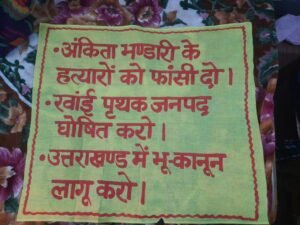 • अंकिता भण्डारी के
हत्यारों को फांसी दो।
• रवांई पृथक जनपद
घोषित करो।
• उत्तराखण्ड में भू-कानून
लागू करो।